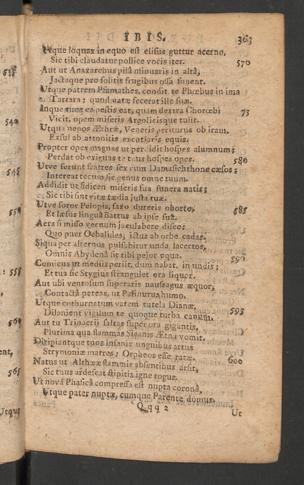 IBIS. 363
Utque loquax in equo est elisus guttur acerno,
Sic tibi claudatur pollice vocis iter. 570
Aut ut Anaxarchus pilâ minuaris in altâ,
Jactaque pro solitis frugibus ossa sonent.
Utque patrem Psamathes, condat te Phœbus in ima
Tartara: quod natæ fecerat ille suæ.
Inque tuos ea pestis eat, quam dextra Chorœbi 75
Vicit, opem miseris Argolicisque tulit.
Utque nepos Æthræ, Veneris periturus ob iram,
Exsul ab attonitis excutiaris equis.
Propter opes magnas ut perdidit hospes alumnum;
Perdat ob exiguas te tuus hospes opes. 580
Utve ferunt fratres sex cum Damasichthone cæsos;
Intereat tecum sic genus omne tuum.
Addidit ut fidicen miseris sua funera natis;
Sic tibi sint vitæ tædia justa tuæ.
Utve soror Pelopis, saxo dureris oborto, 585
Et læsus lingua Battus ab ipse sua.
Aera si misso vernum jaculabere disco;
Quo puer Oebalides, ictus ab orbe cadas.
Siqua per alternos pulsabitur unda lacertos,
Omnis Abydenâ sit tibi pejor aqua. 590
Comicus ut mediis periit, dum nabat, in undis;
Et tua sic Stygius strangulet ora liquor.
Aut ubi ventosum superaris naufragus æquor,
Contactâ pereas, ut Palinurus humo.
Utque cothurnatum vatem tutela Dianæ, 595
Dilaniet vigilum te quoque turba canum.
Aut ut Trinacrii salias super ora gigantis,
Plurima qua flammas Sicanis Ætna vomit.
Diripiantque tuos insanis unguibus artus
Strymoniæ matres: Orpheos esse ratæ. 600
Natus ut Althææ flammis absentibus arsit,
Sic tuus ardescat stipitis igne rogus.
Ut nova Phasiacâ compressa est nupta coronâ,
Utque pater nuptæ, cumque Parente domus.
Qqq 2 Ut